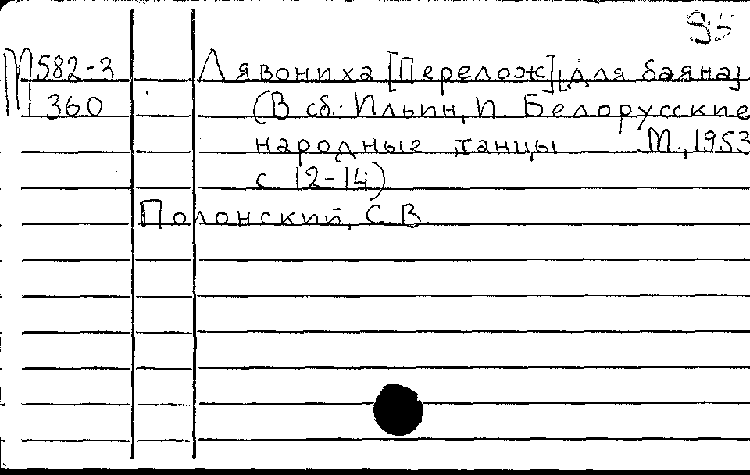 95
М582-3 Лявониха [Перелож] для баяна]
360 (В сб. Ильин, И Белорусские
народные танцы М, 1953
с 12-14)
Полонский, С В